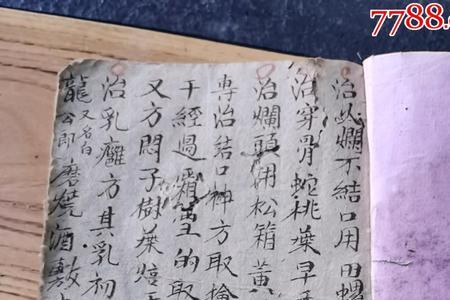 7788.
治火爛不結口用田螺
治穿骨蛇桃葉早
治爛頭用松箱黄
專治结口神方取
干經過霜的取
又方悶子樹葉焙
治乳癰方其乳初
龍又名白公即磨燒酒敷